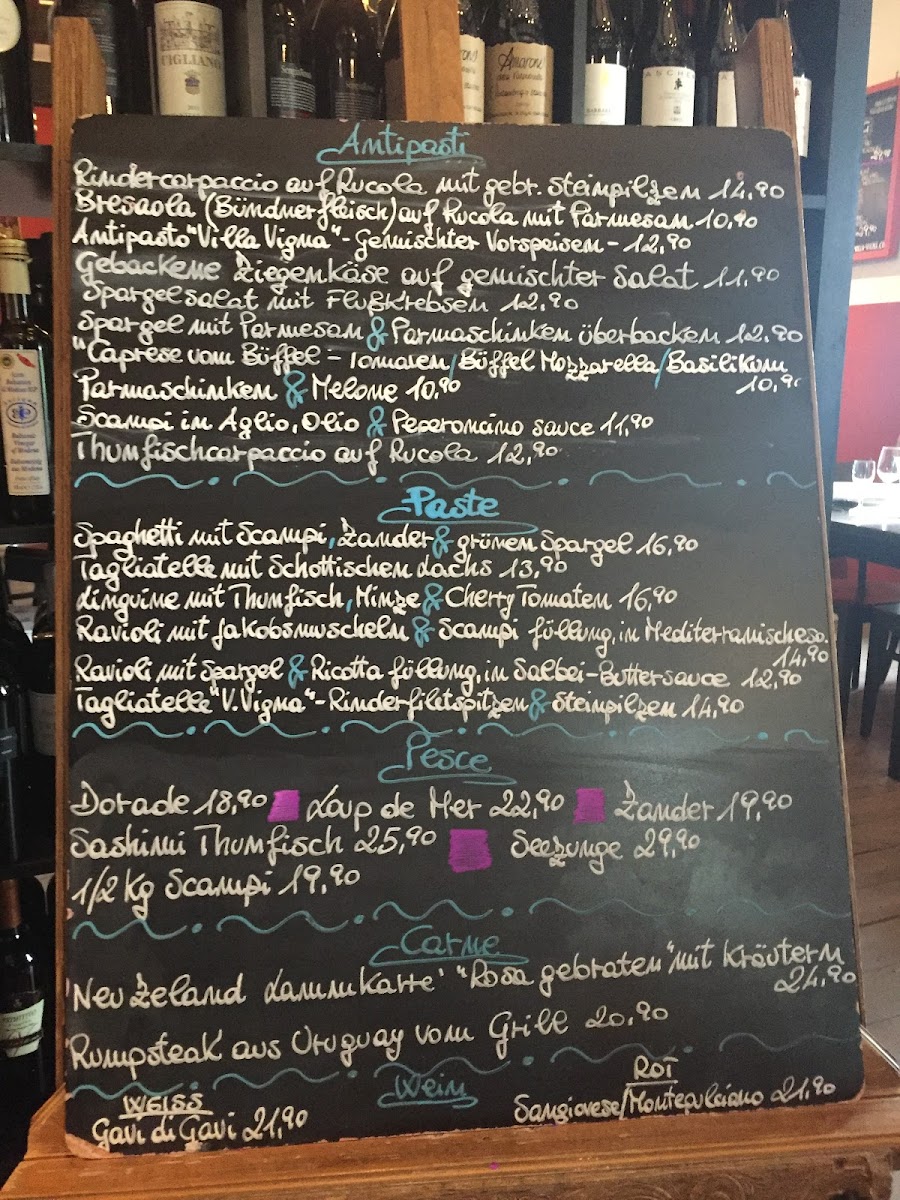 CIGLIANO
Amarone
BARBERA
ASCHERI
Antipasti
Rindercarpaccio auf Rucola mit gebr. Steinpilzen 14,90
Bresaola (Bündnerfleisch) auf Rucola mit Parmesan 10,90
Antipasto "Villa Vigna" - Gemischter Vorspeisen - 12,90
Gebackene Ziegenkäse auf gemischter Salat 11,90
Spargelsalat mit Flußkrebsen 12,90
Spargel mit Parmesan & Parmaschinken überbacken 12,90
"Caprese vom Büffel - Tomaten/Büffel Mozzarella/Basilikum
10,90
Parmaschinken & Melone 10,90
Scampi in Aglio, Olio & Peperoncino sauce 11,90
Thunfischcarpaccio auf Rucola 12,90
Paste
Spaghetti mit Scampi, Zander & grünen Spargel 16,90
Tagliatelle mit Schottischen Lachs 13,90
Linguine mit Thunfisch, Minze & Cherry Tomaten 16,90
Ravioli mit Jakobsmuscheln & Scampi füllung, in Mediterranischeso.
14,90
Ravioli mit Spargel & Ricotta füllung, in Salbei-Buttersauce 12,90
Tagliatelle "V. Vigna" - Rinderfiletspitzen & Steinpilzen 14,90
Pesce
Dorade 18,90 Loup de Mer 22,90 Zander 19,90
Sashimi Thunfisch 25,90 Seezunge 29,90
1/2 Kg Scampi 19,90
Carne
'Neu Zeland Lammkarre' "Rosa gebraten" mit Kräutern
24,90
Rumpsteak aus Uruguay vom Grill 20,90
Wein
WEISS
Gavi di Gavi 21,90
ROT
Sangiovese/Montepulciano 21,90